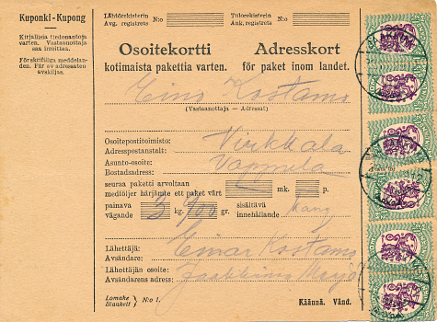 Kuponki-Kupong
Kirjallisia tiedonantoja
varten. Vastaanottaja
saa irroittaa.
För skriftliga meddelan-
den. Får av adressaten
avskiljas.
Lähtörekisterin
Avg. registrets
N:o
Tulorekisterin
Ank. registrets
N:o
Osoitekortti
kotimaista pakettia varten.
Adresskort
för paket inom landet.
Eino Kostamo
(Vastaanottaja — Adressat)
Osoitepostitoimisto:
Adresspostanstalt:
Virkkala
Asunto-osoite:
Bostadsadress:
Vappula
seuraa paketti arvoltaan
medföljer härjämte ett paket värt
mk.
p.
painava
vägande
3 kg. 900 gr.
sisältävä
innehållande
kang
Lähettäjä:
Avsändare:
Einar Kostamo
Lähettäjän osoite:
Avsändarens adress:
Lomake
Blankett
N:o 1.
Käännä. Vänd.